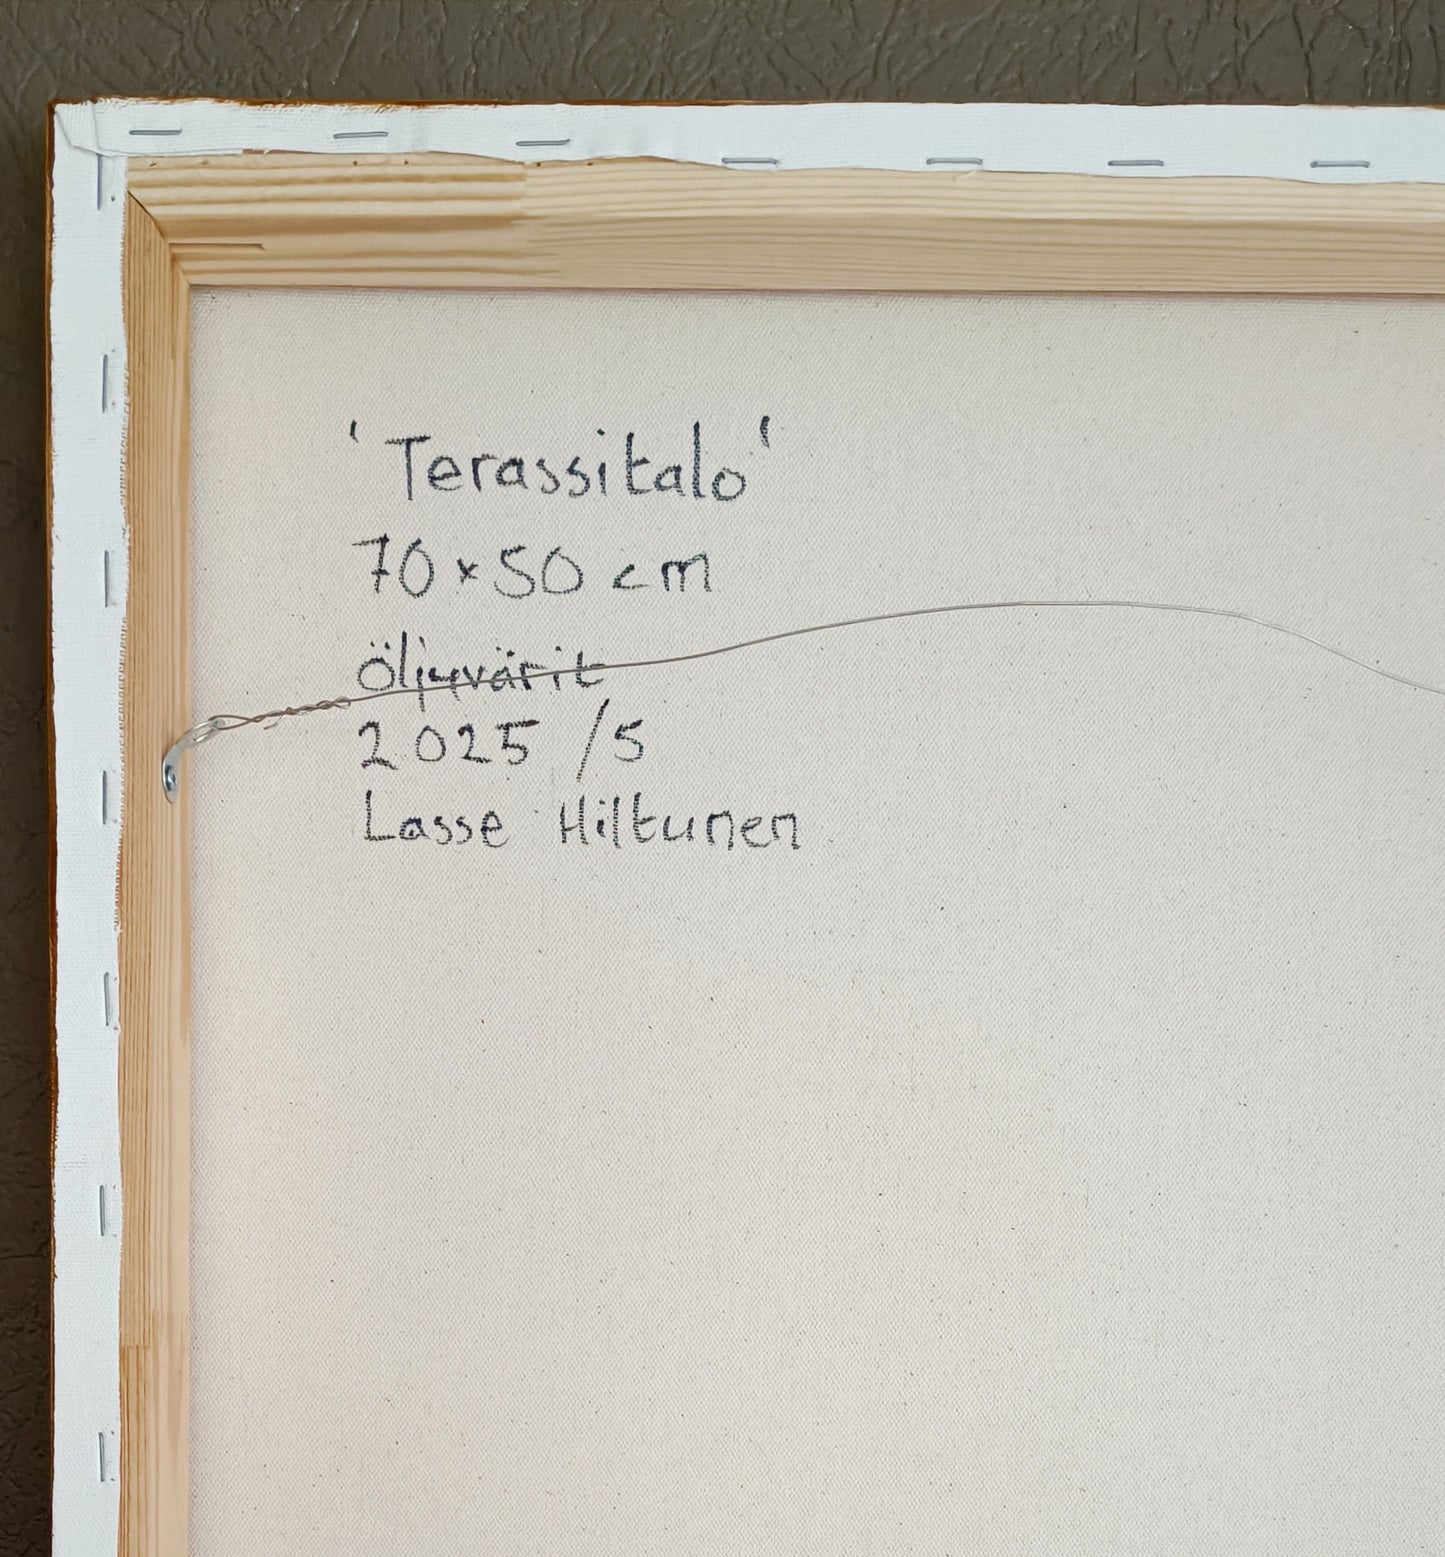 'Terassitalo'
70×50 cm
Öljyvärit
2025 /5
Lasse Hiltunen